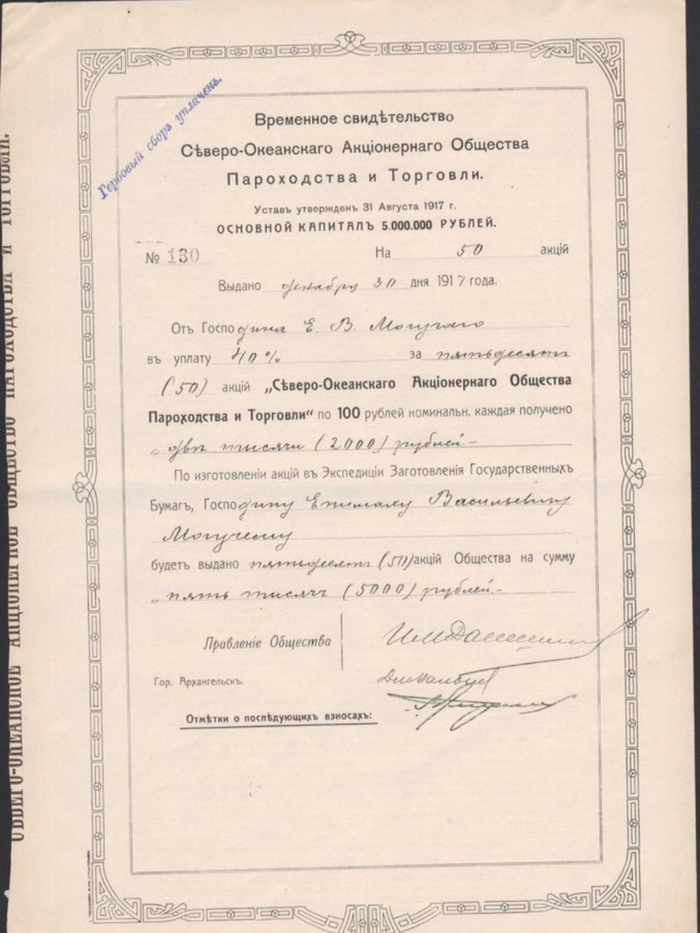 Гербовый сборъ уплаченъ.
Временное свидѣтельство
Сѣверо-Океанскаго Акціонернаго Общества
Пароходства и Торговли.
Уставъ утвержденъ 31 Августа 1917 г.
ОСНОВНОЙ КАПИТАЛЪ 5.000.000 РУБЛЕЙ.
№ 130 На 50 акцій
Выдано декабря 30 дня 1917 года.
Отъ Господина Е. В. Могучаго
въ уплату 40% за пятьдесятъ
(50) акцій „Сѣверо-Океанскаго Акціонернаго Общества
Пароходства и Торговли" по 100 рублей номинальн. каждая получено
двѣ тысячи (2000) рублей.-
По изготовленіи акцій въ Экспедиціи Заготовленія Государственныхъ
Бумагъ, Господину Васильевичу
Могучему
будетъ выдано пятьдесятъ (50) акцій Общества на сумму
пять тысячъ (5000) рублей.-
Правленіе Общества
Гор. Архангельскъ.
Отмѣтки о послѣдующихъ взносахъ:
СѢВЕРО-ОКЕАНСКОЕ АКЦІОНЕРНОЕ ОБЩЕСТВО ПАРОХОДСТВА И ТОРГОВЛИ.